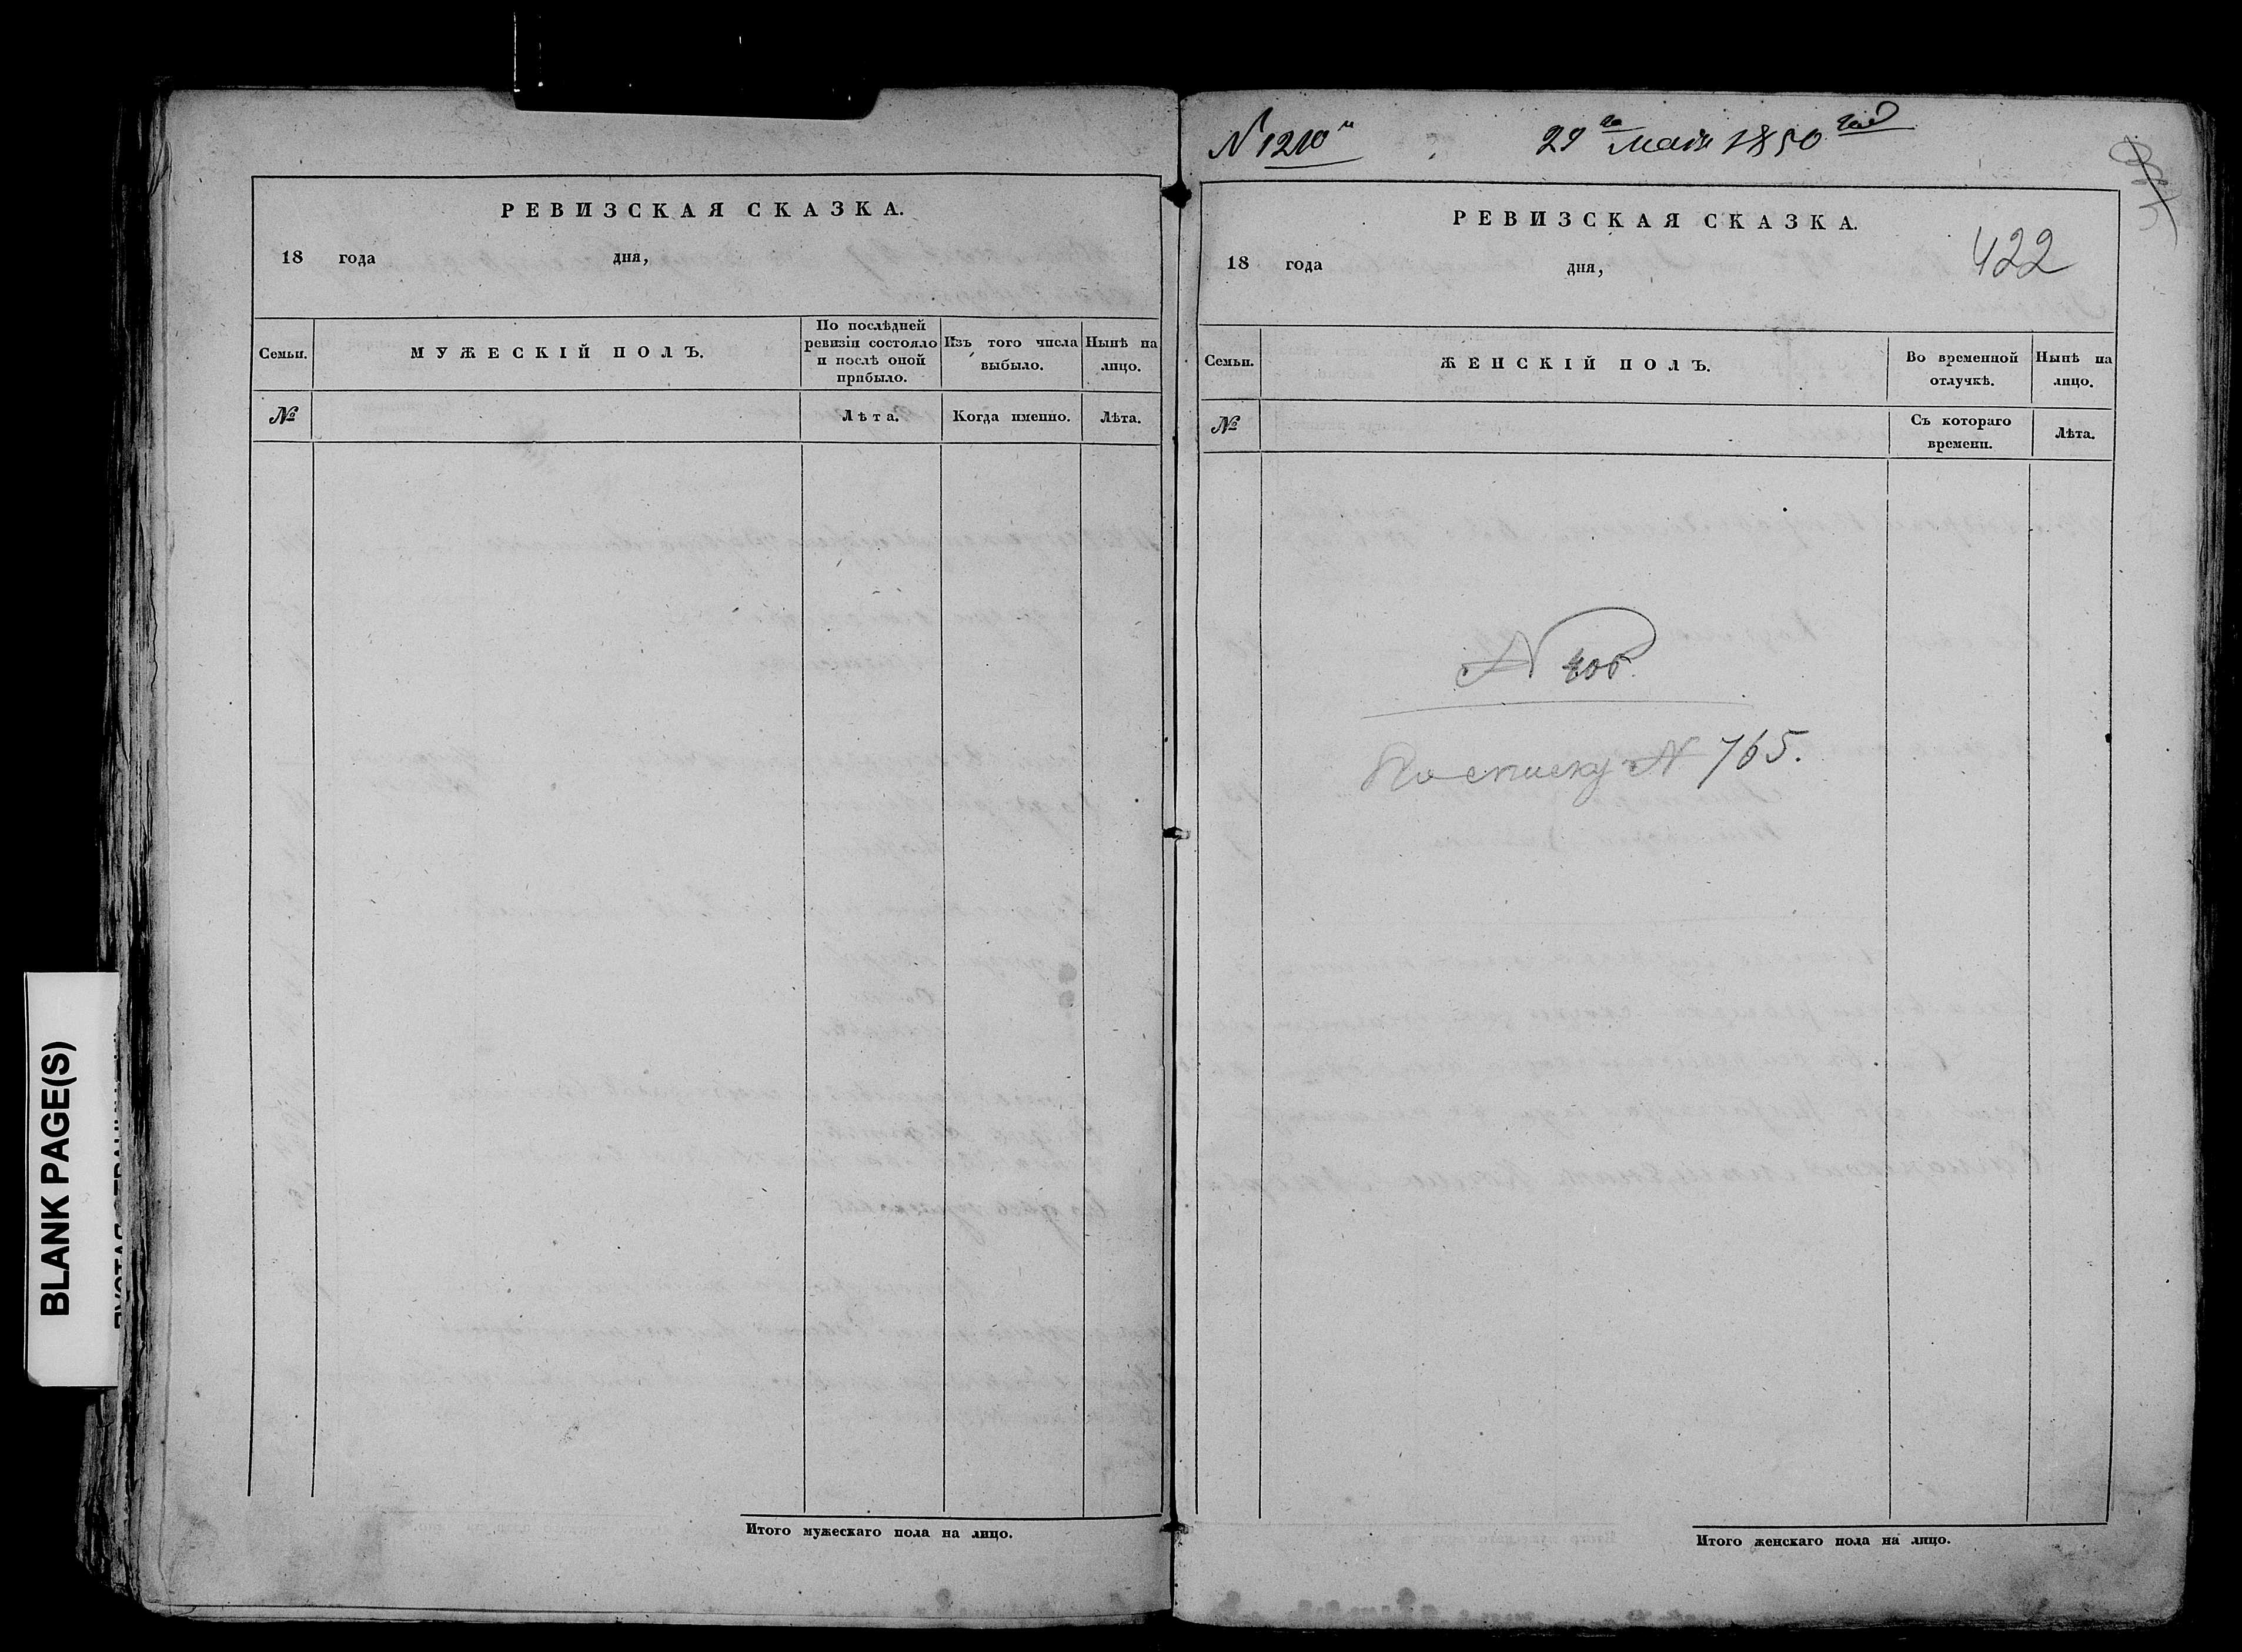 РЕВИЗСКАЯ СКАЗКА.
18 года дня,
Семьи.
МУЖЕСКІЙ ПОЛЪ.
По послѣдней
ревизіи состояло
и послѣ оной
прибыло.
Изъ того числа
выбыло.
Нынѣ на
лицо.
№
Лѣта.
Когда именно.
Лѣта.
Итого мужескаго пола на лицо.
BLANK PAGE(S)
N 1210
29го Маія 1850 год
РЕВИЗСКАЯ СКАЗКА.
422
18 года дня,
Семьи.
ЖЕНСКІЙ ПОЛЪ.
Во временной
отлучкѣ.
Нынѣ на
лицо.
№
Съ котораго
времени.
Лѣта.
N
По списку N 765.
Итого женскаго пола на лицо.